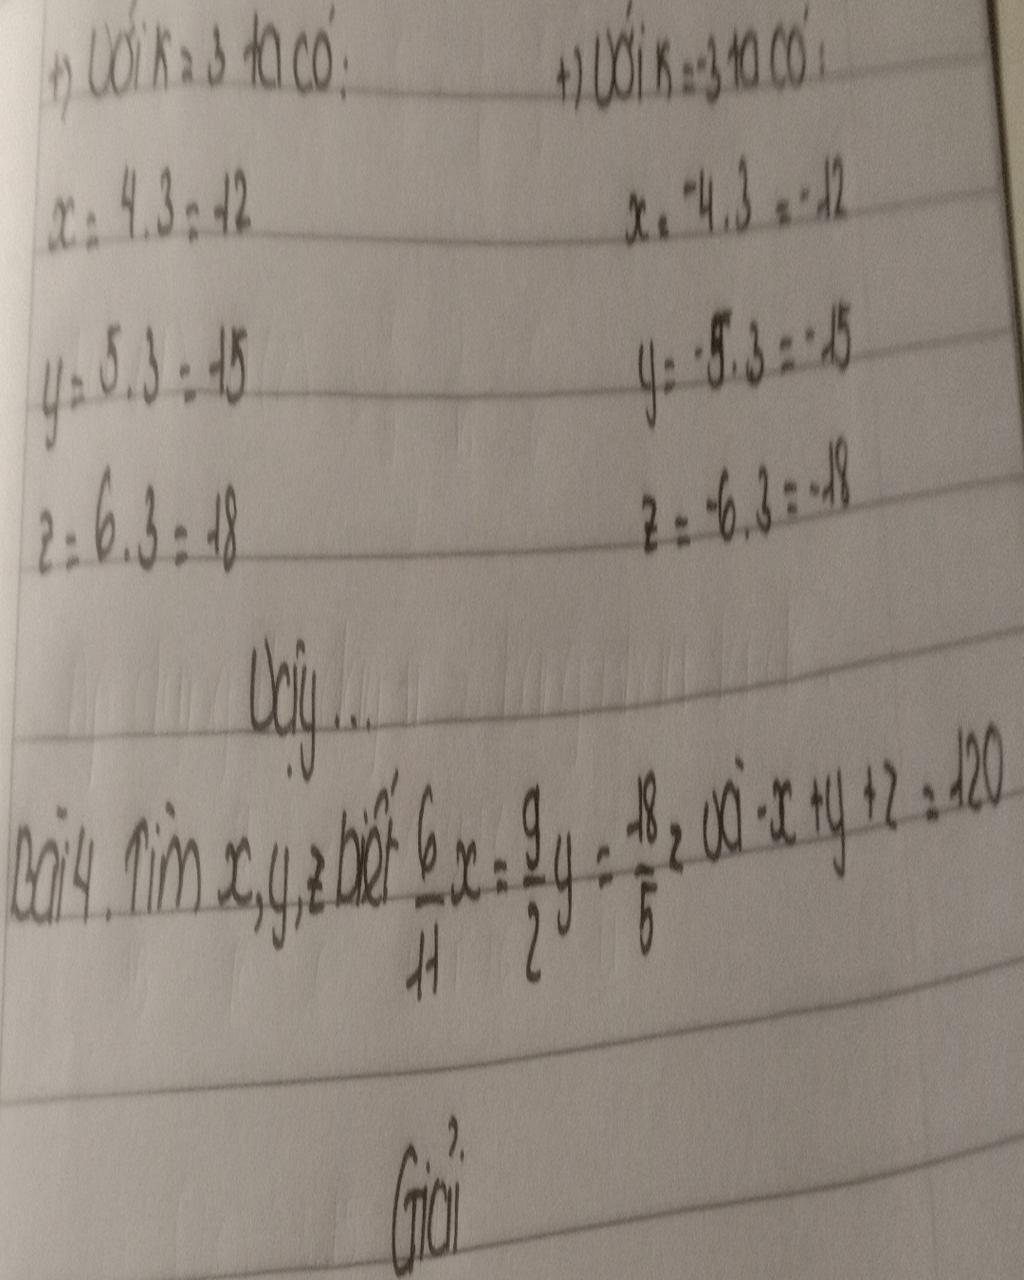 +) Với k = 3 ta có: +) Với k = -3 ta có:
x = 4.3 = 12 x = -4.3 = -12
y = 5.3 = 15 y = -5.3 = -15
z = 6.3 = 18 z = -6.3 = -18
Vậy ...
Bài 4. Tìm x, y, z biết 6/11 x = 9/2 y = 18/5 z và -x + y + z = 120
Giải